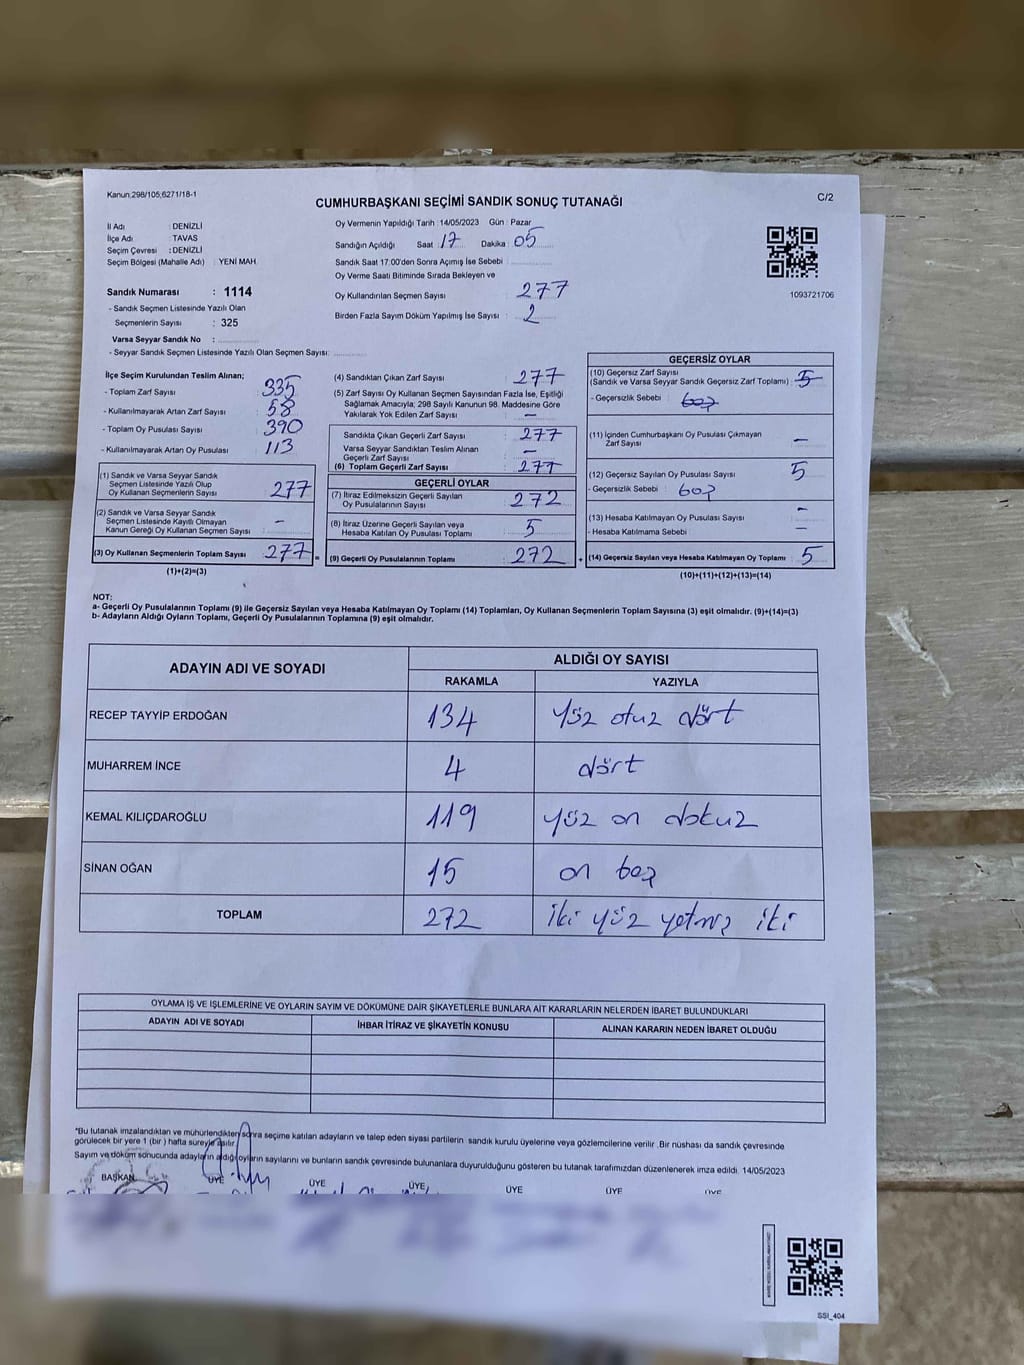 Kanun:298/105;6271/18-1
CUMHURBAŞKANI SEÇİMİ SANDIK SONUÇ TUTANAĞI
C/2
İl Adı : DENİZLİ
İlçe Adı : TAVAS
Seçim Çevresi : DENİZLİ
Seçim Bölgesi (Mahalle Adı) : YENİ MAH.
Sandık Numarası : 1114
- Sandık Seçmen Listesinde Yazılı Olan
Seçmenlerin Sayısı : 325
Varsa Seyyar Sandık No :
- Seyyar Sandık Seçmen Listesinde Yazılı Olan Seçmen Sayısı:
Oy Vermenin Yapıldığı Tarih :14/05/2023 Gün : Pazar
Sandığın Açıldığı Saat : 17 Dakika : 05
Sandık Saat 17:00'den Sonra Açımış İse Sebebi :
Oy Verme Saati Bitiminde Sırada Bekleyen ve
Oy Kullandırılan Seçmen Sayısı : 277
Birden Fazla Sayım Döküm Yapılmış İse Sayısı : 2
1093721706
İlçe Seçim Kurulundan Teslim Alınan;
- Toplam Zarf Sayısı : 335
- Kullanılmayarak Artan Zarf Sayısı : 58
- Toplam Oy Pusulası Sayısı : 390
- Kullanılmayarak Artan Oy Pusulası : 113
(1) Sandık ve Varsa Seyyar Sandık
Seçmen Listesinde Yazılı Olup
Oy Kullanan Seçmenlerin Sayısı : 277
(2) Sandık ve Varsa Seyyar Sandık
Seçmen Listesinde Kayıtlı Olmayan
Kanun Gereği Oy Kullanan Seçmen Sayısı : -
(3) Oy Kullanan Seçmenlerin Toplam Sayısı : 277
(1)+(2)=(3)
(4) Sandıktan Çıkan Zarf Sayısı : 277
(5) Zarf Sayısı Oy Kullanan Seçmen Sayısından Fazla İse, Eşitliği
Sağlamak Amacıyla; 298 Sayılı Kanunun 98. Maddesine Göre
Yakılarak Yok Edilen Zarf Sayısı : -
Sandıkta Çıkan Geçerli Zarf Sayısı : 277
Varsa Seyyar Sandıktan Teslim Alınan
Geçerli Zarf Sayısı : -
(6) Toplam Geçerli Zarf Sayısı : 277
GEÇERLİ OYLAR
(7) İtiraz Edilmeksizin Geçerli Sayılan
Oy Pusulalarının Sayısı : 272
(8) İtiraz Üzerine Geçerli Sayılan veya
Hesaba Katılan Oy Pusulası Toplamı : 5
= (9) Geçerli Oy Pusulalarının Toplamı : 272
GEÇERSİZ OYLAR
(10) Geçersiz Zarf Sayısı
(Sandık ve Varsa Seyyar Sandık Geçersiz Zarf Toplamı) : 5
- Geçersizlik Sebebi : boş
(11) İçinden Cumhurbaşkanı Oy Pusulası Çıkmayan
Zarf Sayısı : -
(12) Geçersiz Sayılan Oy Pusulası Sayısı : 5
- Geçersizlik Sebebi : boş
(13) Hesaba Katılmayan Oy Pusulası Sayısı : -
- Hesaba Katılmama Sebebi : -
+ (14) Geçersiz Sayılan veya Hesaba Katılmayan Oy Toplamı : 5
(10)+(11)+(12)+(13)=(14)
NOT:
a- Geçerli Oy Pusulalarının Toplamı (9) ile Geçersiz Sayılan veya Hesaba Katılmayan Oy Toplamı (14) Toplamları, Oy Kullanan Seçmenlerin Toplam Sayısına (3) eşit olmalıdır. (9)+(14)=(3)
b- Adayların Aldığı Oyların Toplamı, Geçerli Oy Pusulalarının Toplamına (9) eşit olmalıdır.
ADAYIN ADI VE SOYADI
ALDIĞI OY SAYISI
RAKAMLA YAZIYLA
RECEP TAYYİP ERDOĞAN 134 Yüz otuz dört
MUHARREM İNCE 4 dört
KEMAL KILIÇDAROĞLU 119 yüz on dokuz
SİNAN OĞAN 15 on beş
TOPLAM 272 iki yüz yetmiş iki
OYLAMA İŞ VE İŞLEMLERİNE VE OYLARIN SAYIM VE DÖKÜMÜNE DAİR ŞİKAYETLERLE BUNLARA AİT KARARLARIN NELERDEN İBARET BULUNDUKLARI
ADAYIN ADI VE SOYADI İHBAR İTİRAZ VE ŞİKAYETİN KONUSU ALINAN KARARIN NEDEN İBARET OLDUĞU
*Bu tutanak imzalandıktan ve mühürlendikten sonra seçime katılan adayların ve talep eden siyasi partilerin sandık kurulu üyelerine veya gözlemcilerine verilir. Bir nüshası da sandık çevresinde
görülecek bir yere 1 (bir) hafta süreyle asılır.
Sayım ve döküm sonucunda adayların aldığı oyların sayılarını ve bunların sandık çevresinde bulunanlara duyurulduğunu gösteren bu tutanak tarafımızdan düzenlenerek imza edildi. 14/05/2023
BAŞKAN ÜYE ÜYE ÜYE ÜYE ÜYE ÜYE
SSI_404